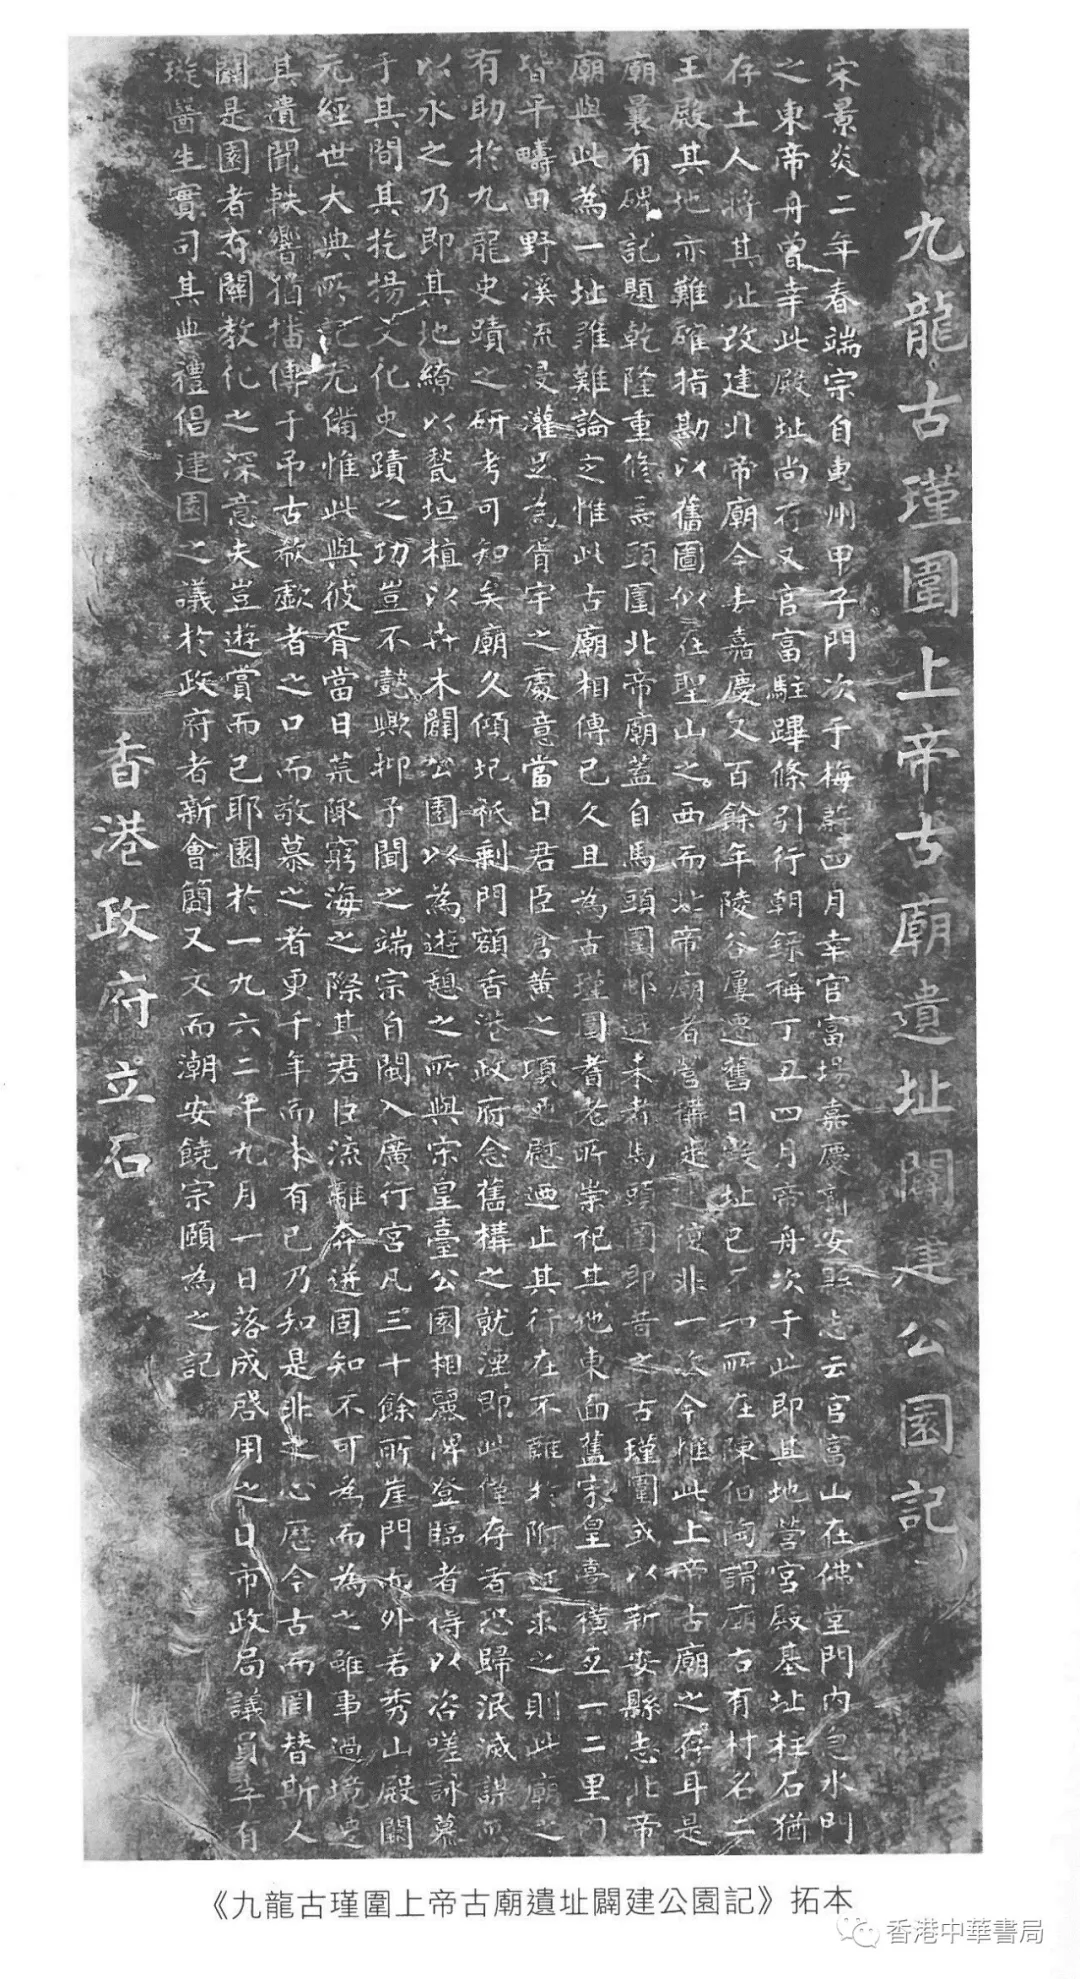 九龍古瑾圍上帝古廟遺址闢建公園記
宋景炎二年春端宗自惠州甲子門次于梅蔚四月幸官富場嘉慶新安縣志云官富山在佛堂門內急水門
之東帝舟曾幸此殿址尚存又官富駐蹕條引行朝錄稱丁丑四月帝舟次于此即其地營宮殿基址柱石猶
存土人將其址改建北帝廟今去嘉慶又百餘年陵谷屢遷舊日殿址已不知所在陳伯陶謂廟右有村名二
王殿其地亦難確指勘以舊圖似在聖山之西而北帝廟者營構是處非一次今惟此上帝古廟之存耳是
廟曩有碑記題乾隆重修馬頭圍北帝廟蓋自馬頭圍邨遷來者馬頭圍即昔之古瑾圍或以新安縣志北帝
廟與此為一址雖難論定惟此古廟相傳已久且為古瑾圍耆老所崇祀其地東面舊宋皇臺橫互一二里內
皆平疇田野溪流浸灌足為胥宇之處意當日君臣倉黃之頃迺慰迺止其行在不難於附近求之則此廟之
有助於九龍史蹟之研考可知矣廟久傾圮祇剩門額香港政府念舊構之就湮即此僅存者恐歸泯滅謀所
以永之乃即其地繚以甃垣植以卉木闢公園以為遊憩之所與宋皇臺公園相麗俾登臨者得以咨嗟詠慕
于其間其扢揚文化史蹟之功豈不懿歟抑予聞之端宗自閩入廣行宮凡三十餘所崖門而外若秀山殿闕
元經世大典所記尤備惟此與彼胥當日荒陬窮海之際其君臣流離奔迸固知不可為而為之雖事過境遷
其遺聞軼響猶播傳于弔古欷歔者之口而敬慕之者更千年而未有已乃知是非之心歷今古而罔替斯人
闢是園者有關教化之深意夫豈遊賞而已耶園於一九六二年九月一日落成啓用之日市政局議員李有
璇醫生實司其典禮倡建園之議於政府者新會簡又文而潮安饒宗頤為之記
香港政府立石
《九龍古瑾圍上帝古廟遺址闢建公園記》拓本
香港中華書局